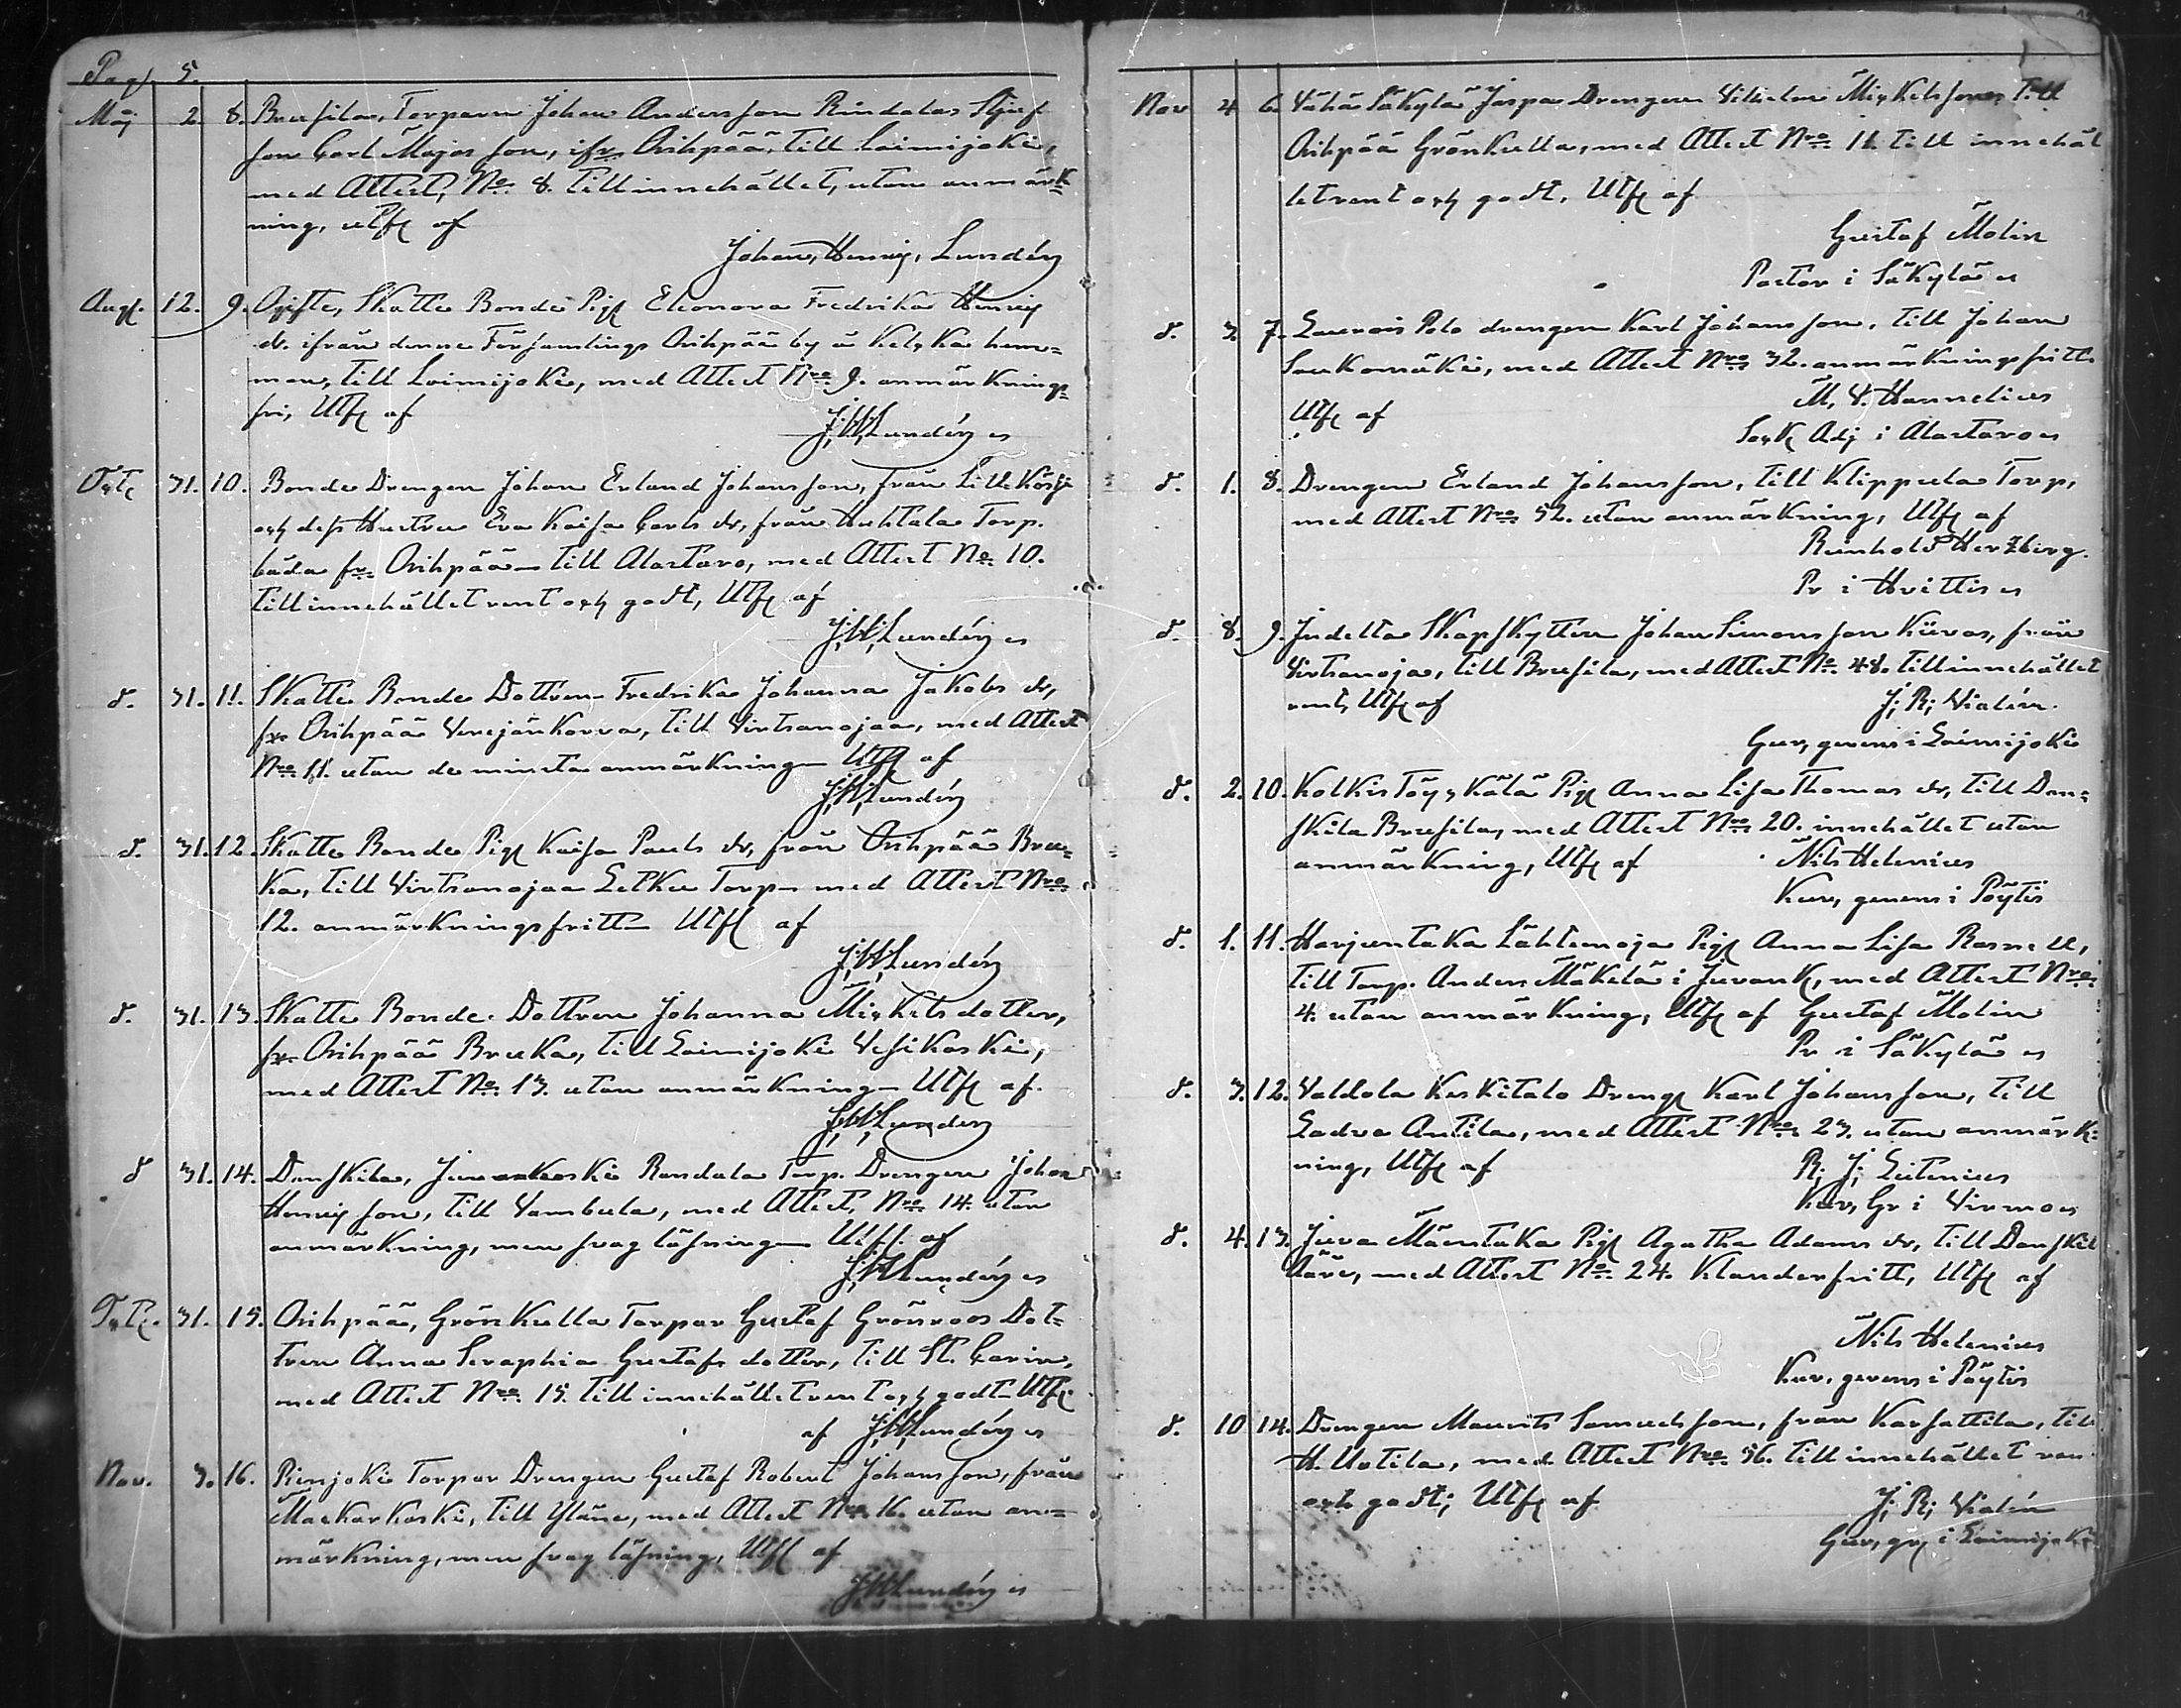 Pag. 5.
Maj 2. 8. Brusila, Torparen Johan Andersson Rindalas Stjuf
son Carl Majas son, ifr. Orihpää, till Loimijoki,
med Attest, No. 8. till innehållet, utan anmärk=
ning, utf. af
Johan, Henric, Lundén
Aug. 12. 9. Ogifte, Skatte Bonde Pig. Eleonora Fredrika Henric
dr. ifrån denne Församlings Orihpää by å Kelkka hem=
man, till Loimijoki, med Attest Nro 9. anmärknings=
fri, Utf. af
J, H, Lundén
Oct. 31. 10. Bonde Drengen Johan Erland Johansson, från Lill
och dess Hustru Eva Kaisa Carls dr, från Huhtala Torp.
båda fr. Orihpää till Alastaro, med Attest No. 10.
till innehållet rent och godt, Utf. af
J, H, Lundén
d. 31. 11. Skatte Bonde Dottren Fredrika Johanna Jakobs dr,
fr. Orihpää Verejänkorva, till Virtsanojaa, med Attest
Nro 11. utan de minsta anmärkning Utf. af
J, H, Lundén
d. 31. 12. Skatte Bonde Pig. Kaisa Pauls dr, från Orihpää Bru=
ka, till Virtsanojaa Torp med Attest Nro
12. anmärkningsfritt Utf. af
J, H, Lundén
d. 31. 13. Skatte Bonde Dottren Johanna Mickelsdotter,
fr. Orihpää Bruka, till Loimijoki Vesikoski,
med Attest No. 13. utan anmärkning Utf. af.
J, H, Lundén
d 31. 14. Danskila, Juvankoski Randala Torp. Drengen Johan
Henricson, till Vambula, med Attest, Nro 14. utan
anmärkning, men svag läsning Utf. af
J, H, Lundén
Oct. 31. 15. Orihpää, Grönkulla Torpar Gustaf Grönroos Dot=
tren Anna Seraphia Gustafs dotter, till St. Carin,
med Attest Nro 15. till innehållet rent och godt Utf.
af J, H, Lundén
Nov. 3. 16. Rienjoki Torpar Drengen Gustaf Robert Johansson, från
Maekarkoski, till Yläne, med Attest Nro 16. utan an=
märkning, men svag läsning, Utf. af
J, H, Lundén
Nov 4 6. Vähä Säkylä Jaspa Drengen Vilhelm Mickelsson, till
Orihpää Grönkulla, med Attest Nro 11. till innehål
let rent och godt, Utf. af
Gustaf Molin
Pastor i Säkylä
d. 3 7. Polo drengen Karl Johansson, till Johan
Soukomäki, med Attest Nro 32. anmärkningsfritt.
Utf. af M, V. Hannelius
Sock Adj i Alastaro
d. 1. 8. Drengen Erland Johansson, till Klippula Torp,
med Attest Nro 52. utan anmärkning, Utf. af
Reinhold Herzberg.
Pr i Hvittis
d. 8. 9. Indelta Skarpskytten Johan Simonsson Kuvas, från
Virtsanoja, till Brusila, med Attest No. 48. till innehållet
rent, Utf. af J, R, Vialén.
Cur, gerens i Loimijoki
d. 2. 10. Kolkis Töyckälä Pig. Anna Lisa Thomas dr, till Dan=
skila Brusila, med Attest Nro 20. innehållet utan
anmärkning, Utf. af Nils Helenius
Kur, gerens i Pöytis
d. 1. 11. Harjuntaka Lähteenoja Pig. Anna Lisa Rosnell,
till Torp. Anders Mäkelä i Juvank, med Attest Nro
4. utan anmärkning, Utf. af Gustaf Molin
Pr i Säkylä
d. 3. 12. Valdola Keskitalo Dreng. Karl Johansson, till
Ladva Antila, med Attest Nro 23. utan anmärk=
ning, Utf. af R, J, Leitenius
Kur, Gr i Virmo
d. 4. 13. Juva Mäentaka Pig. Agatha Adams dr, till Danskil
med Attest No. 24. Klanderfritt, Utf. af
Nils Helenius
Kur, gerens i Pöytis
d. 10 14. Drengen Maurits Samuelsson, från Karsattila, till
H. Uotila, med Attest Nro 56. till innehållet ren
och godt, Utf. af J, R, Vialén
Cur, gr, i Loimijoki